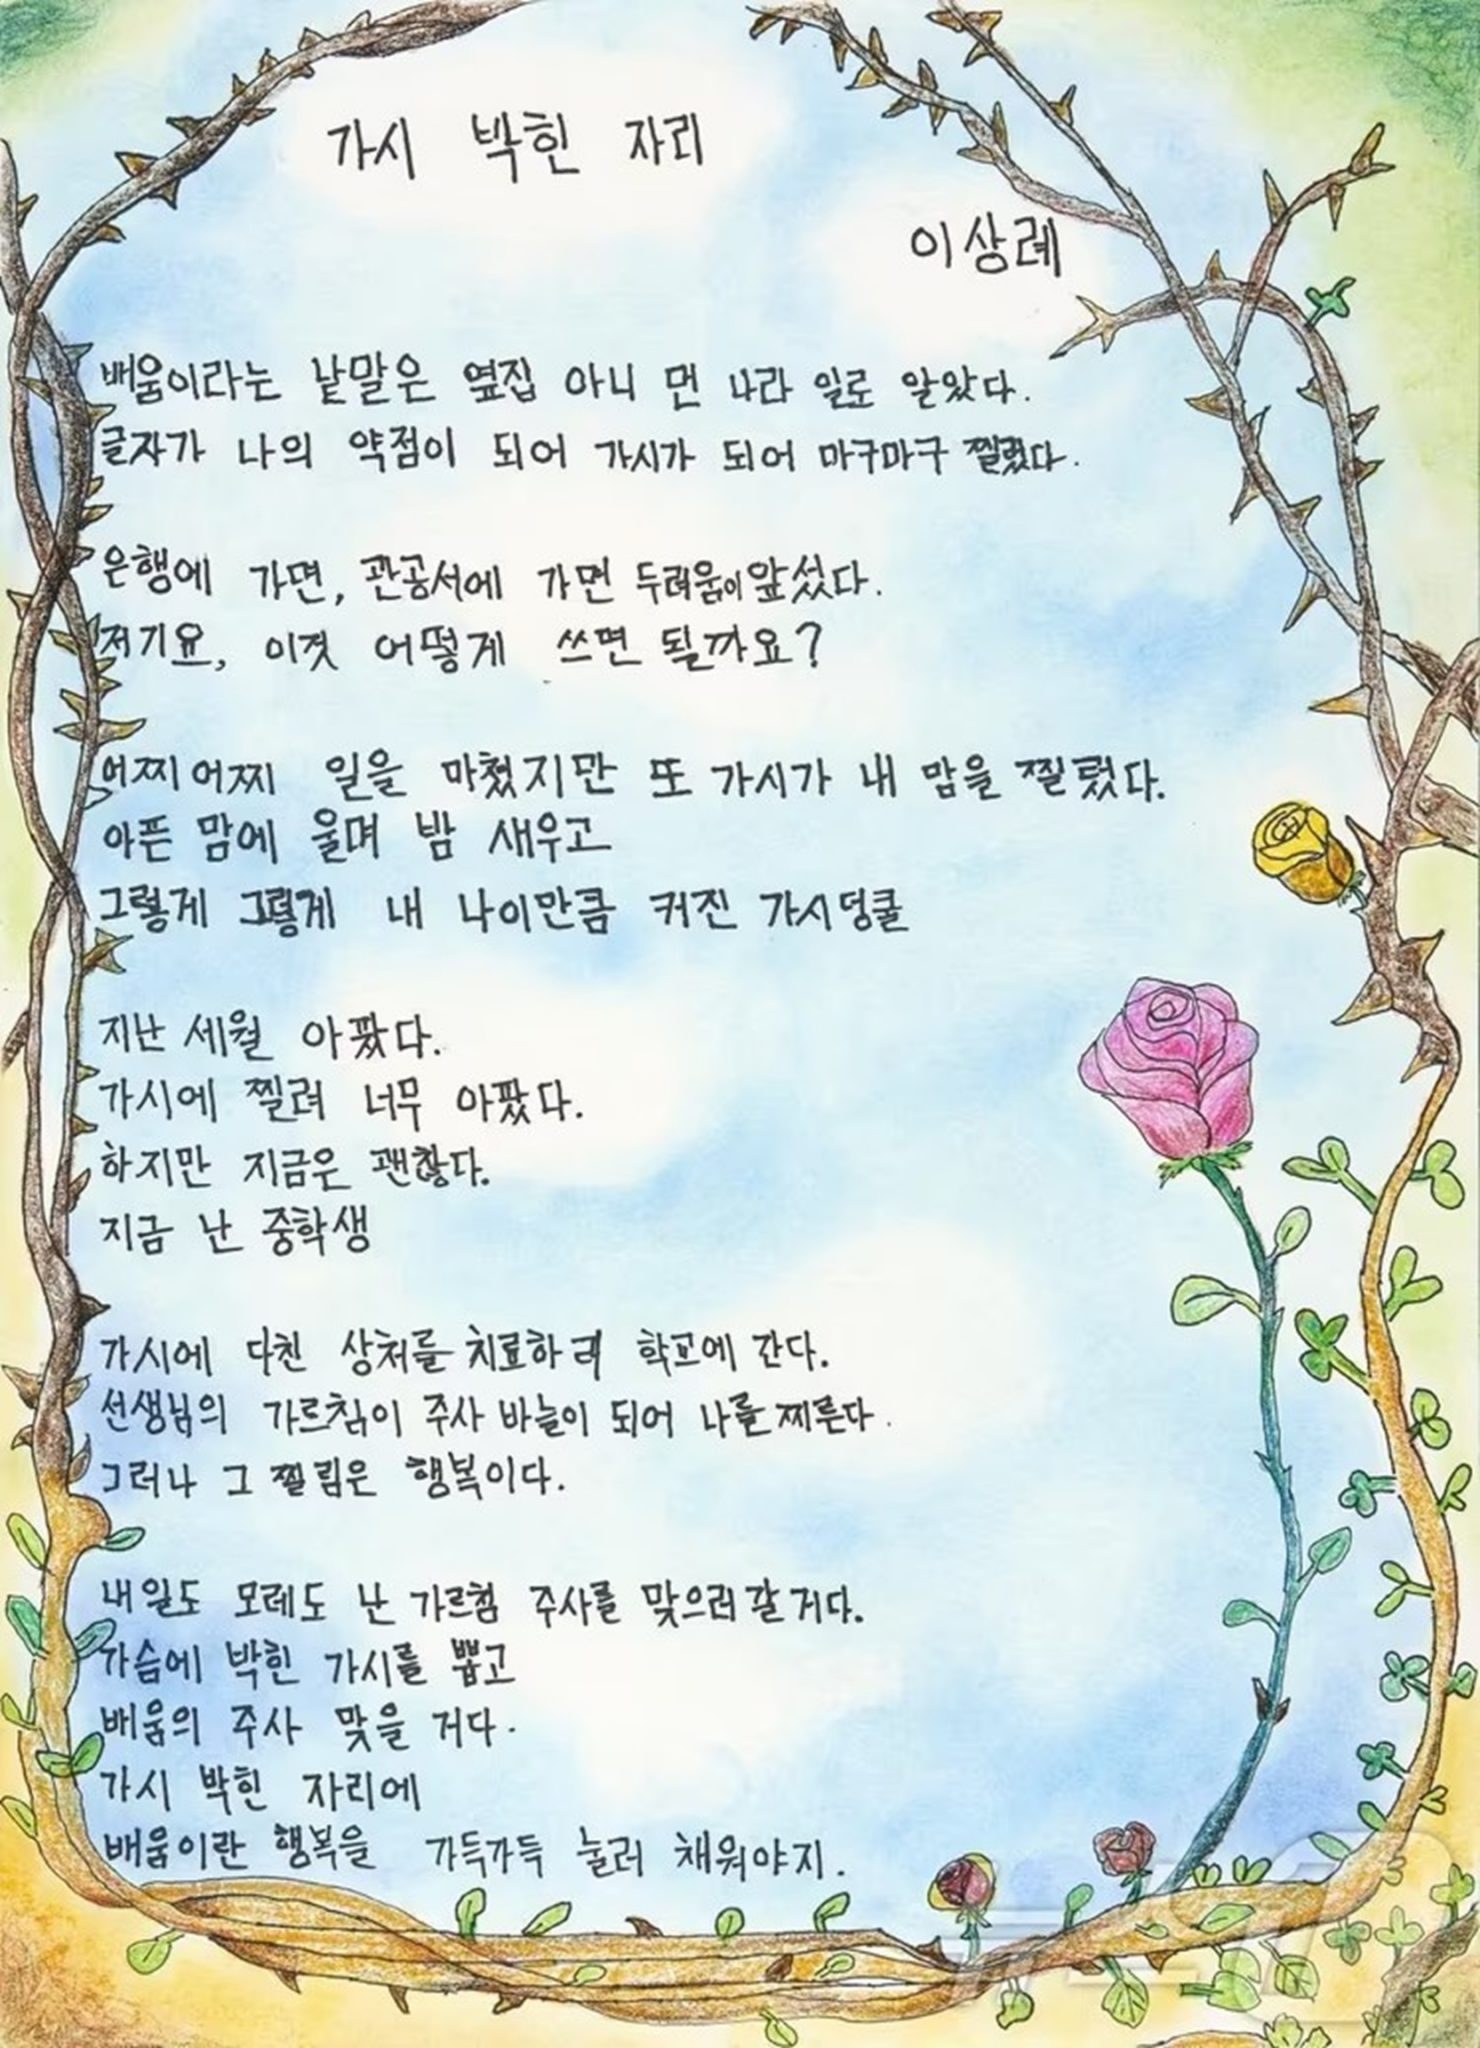 가시 박힌 자리
이상례
배움이라는 낱말은 옆집 아니 먼 나라 일로 알았다.
글자가 나의 약점이 되어 가시가 되어 마구마구 찔렀다.
은행에 가면, 관공서에 가면 두려움이 앞섰다.
저기요, 이것 어떻게 쓰면 될까요?
어찌어찌 일을 마쳤지만 또 가시가 내 맘을 찔렀다.
아픈 맘에 울며 밤 새우고
그렇게 그렇게 내 나이만큼 커진 가시덩쿨
지난 세월 아팠다.
가시에 찔려 너무 아팠다.
하지만 지금은 괜찮다.
지금 난 중학생
가시에 다친 상처를 치료하러 학교에 간다.
선생님의 가르침이 주사 바늘이 되어 나를 찌른다.
그러나 그 찔림은 행복이다.
내일도 모레도 난 가르침 주사를 맞으러 갈거다.
가슴에 박힌 가시를 뽑고
배움의 주사 맞을 거다.
가시 박힌 자리에
배움이란 행복을 가득가득 눌러 채워야지.
뉴스1